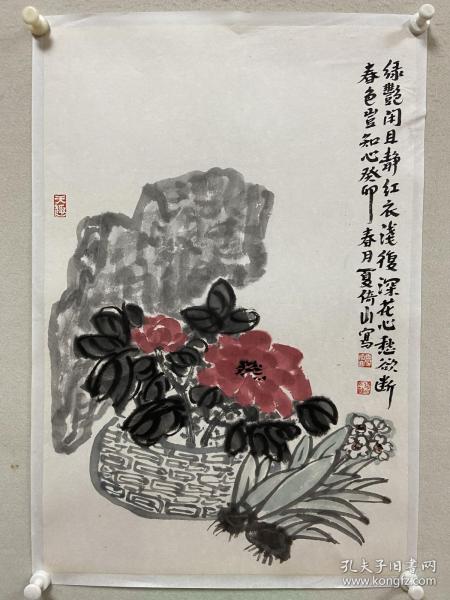 绿艷闲且静红衣淺復深花心愁欲断
春色豈知心癸卯春月夏倚山寫
孔夫子旧書网
www.kongfz.com